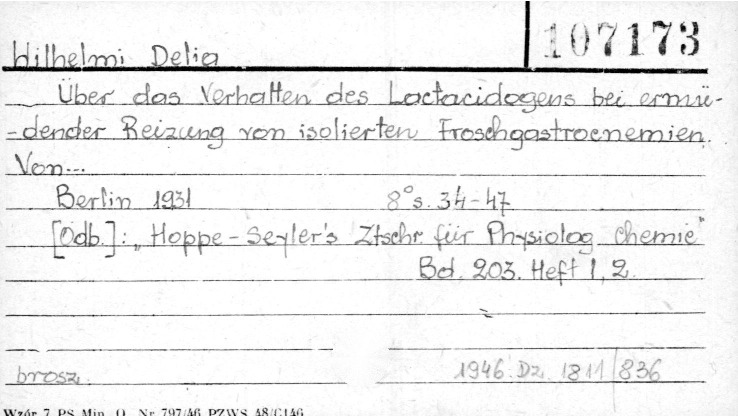 107173
Wilhelmi Delia
Über das Verhalten des Lactacidogens bei ermü-
-dender Reizung von isolierten Froschgastrocnemien.
Von...
Berlin 1931 8° s. 34-47
[Odb.]: „Hoppe-Seyler's Ztschr für Physiolog. Chemie"
Bd. 203. Heft 1, 2.
brosz. 1946. Dz. 1811/836
Wzór 7 PS Min. O. Nr 797/46 PZWS 48/C146